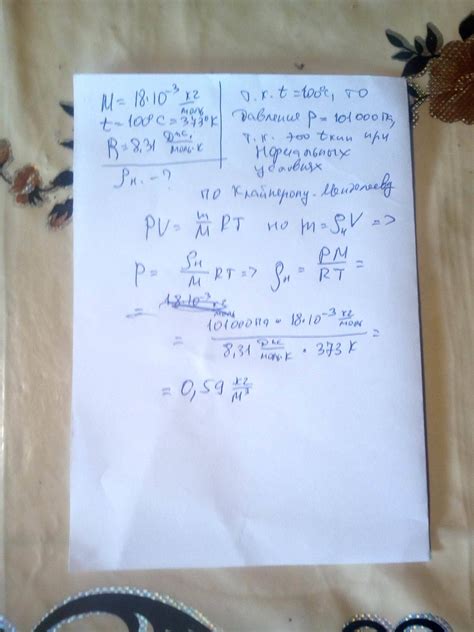 M = 18·10⁻³ кг/моль
t = 100°C = 373°K
R = 8,31 Дж/моль·К
ρн. - ?
т.к. t = 100°C, то
давление P = 101000 Па,
т.к. это t кип при
нормальных
условиях
по Клайперону-Менделееву
PV = m/M RT но m = ρнV =>
P = ρн/M RT => ρн = PM/RT =
= 18·10⁻³ кг/моль
= 101000 Па · 18·10⁻³ кг/моль / 8,31 Дж/моль·К · 373 К =
= 0,59 кг/м³